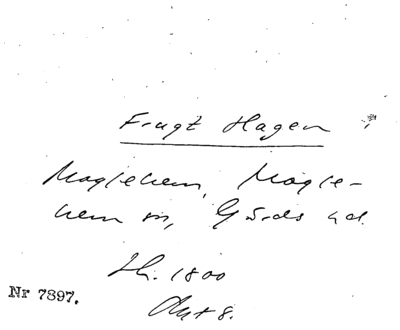 Frugt Hagen
Maglehem, Magle-
hem sn, Gärds hd.
1800
Nr 7897.